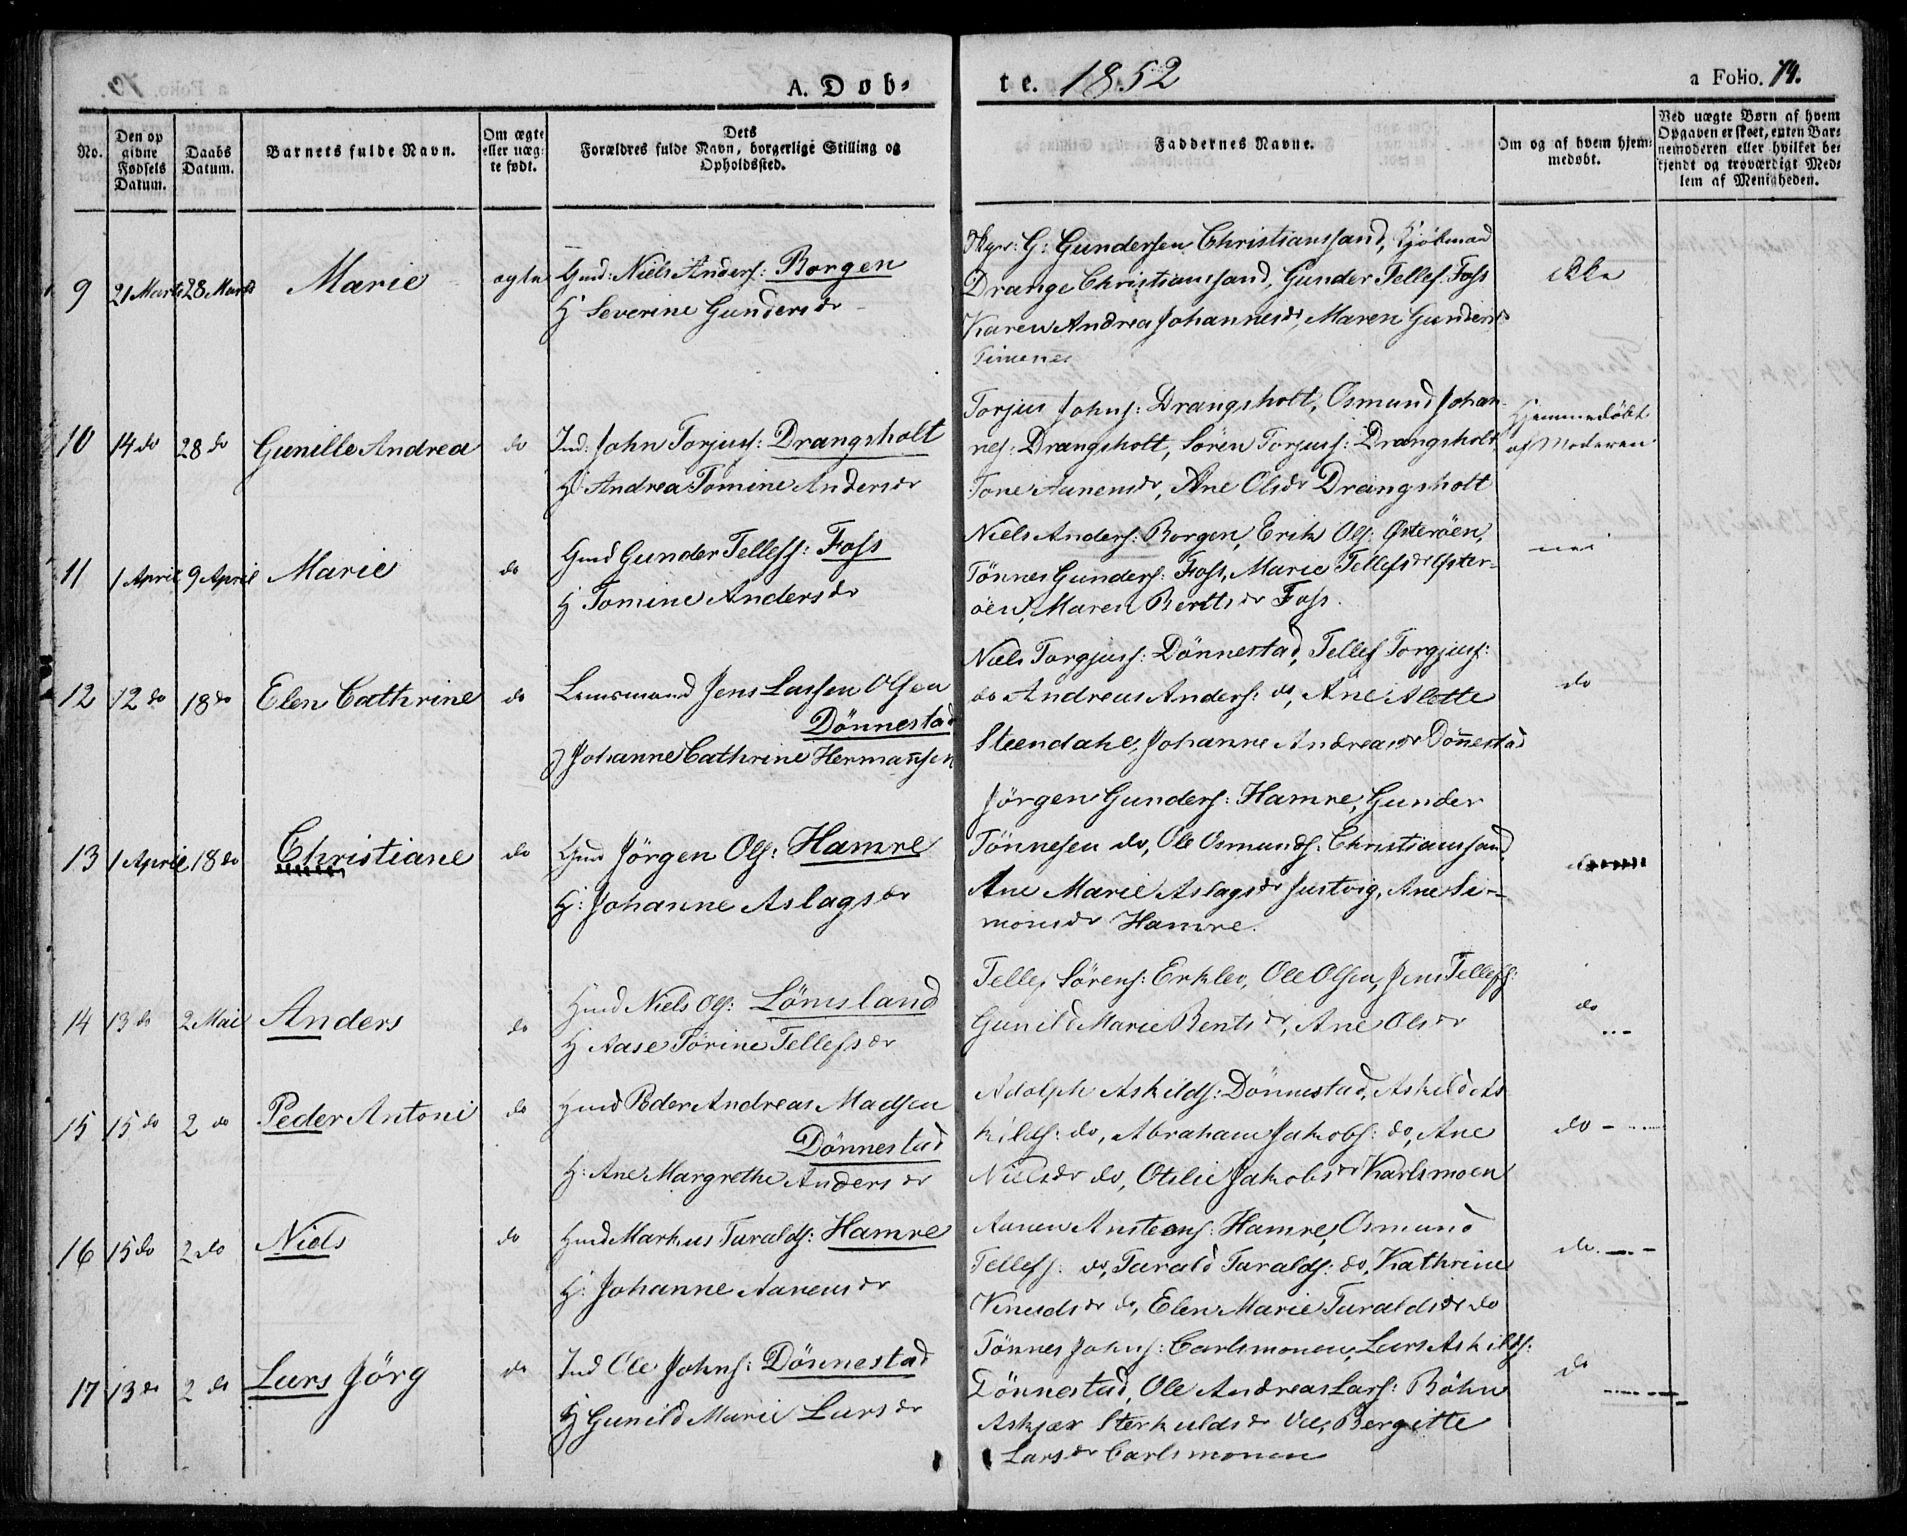 A. Døb= te. 1852 a Folio. 74.
No. Den op givne Fødsels Datum. Daabs Datum. Barnets fulde Navn. Om ægte eller uæg= te født. Dets Forældres fulde Navn, borgerlige Stilling og Opholdssted. Faddernes Navne. Om og af hvem hjem= medøbt. Ved uægte Børn af hvem Opgaven er skeet, enten Bar= nemoderen eller hvilket be= kjendt og troværdigt Med= lem af Menigheden.
9 21 Marts 28 Marts Marie ægte Gmd: Niels Anders: Borgen
H Severine Gundersdr
G: Gundersen Christianssand, Kjøbmand
Drange Christianssand, Gunder Tellefs: Foss
Karen Andrea Johannesdr, Maren Gundersdr
Timenes
ikke
10 14 do 28 do Gunille Andrea do Ind: John Torjuss: Drangsholt
H: Andrea Tomine Andersdr
Torjus Johns: Drangsholt, Osmund Johan-
nes: Drangsholt, Sören Torjuss: Drangsholt,
Tone Aanensdr, Ane Olsdr Drangsholt
Hjemmedöbt
af Moderen
11 1 April 9 April Marie do Gmd Gunder Tellefs: Foss
H Tomine Andersdr
Niels Anders: Borgen, Erik Ols: Österöen,
Tönnes Gunders: Foss, Marie Tellefsdr Öster-
öen, Maren Bertsdr Foss.
nei
12 12 do 18 do Elen Cathrine do Lensmand Jens Lassen Olsen
Dönnestad
H Johanne Cathrine Hermansen
Niels Torgjuss: Dönnestad, Tellef Torgjuss:
do Andreas Anders: do, Ane Alette
Steendahl, Johanne Andreasdr Dönnestad
do
13 1 April 18 do Christiane do Gmd Jörgen Ols: Hamre
H: Johanne Aslagsdr
Jörgen Gunders: Hamre, Gunder
Tönnesen do, Ole Osmunds: Christianssand,
Ane Marie Aslagsdr Justvig, Ane Si-
monsdr Hamre.
do
14 13 do 2 Mai Anders do Hmd Niels Ols: Lömsland
H Aase Törine Tellefsdr
Tellef Sörens: Erklev, Ole Olsen, Jens Tellefs:
Gunild Marie Bentsdr, Ane Olsdr
do
15 15 do 2 do Peder Antoni do Hmd Peder Andreas Madsen
Dönnestad
H: Ane Margrethe Andersdr
Adolph Askilds: Dönnestad, Askild As
kilds: do, Abraham Jakobs: do, Ane
Nielsdr do, Otilie Jakobsdr Karlsmoen
do
16 15 do 2 do Niels do Hmd Markus Taralds: Hamre
H: Johanne Aanensdr
Aanen Ansteens: Hamre, Osmund
Tellefs: do, Tarald Taralds: do, Kathrine
Knudsdr do, Elen Marie Taraldsdr do
do
17 13 do 2 do Lars Jörg do Ind Ole Johns: Dönnestad
H Gunild Marie Larsdr
Tönnes Johns: Carlsmonen, Lars Askilds:
Dönnestad, Ole Andreas Lars: Böhn
Askjær Sterkulds dr Bergitte
Larsdr Carlsmonen
do